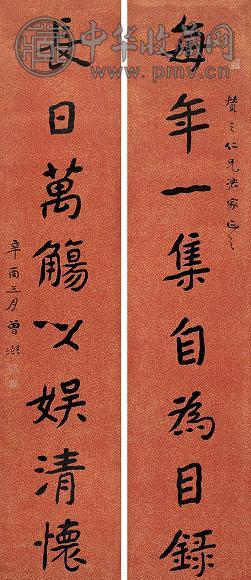 中华收藏网
www.pmv.cn
赞之仁兄法家正之
每年一集自為目録
長日萬觴以娱清懷
辛酉三月曾熙